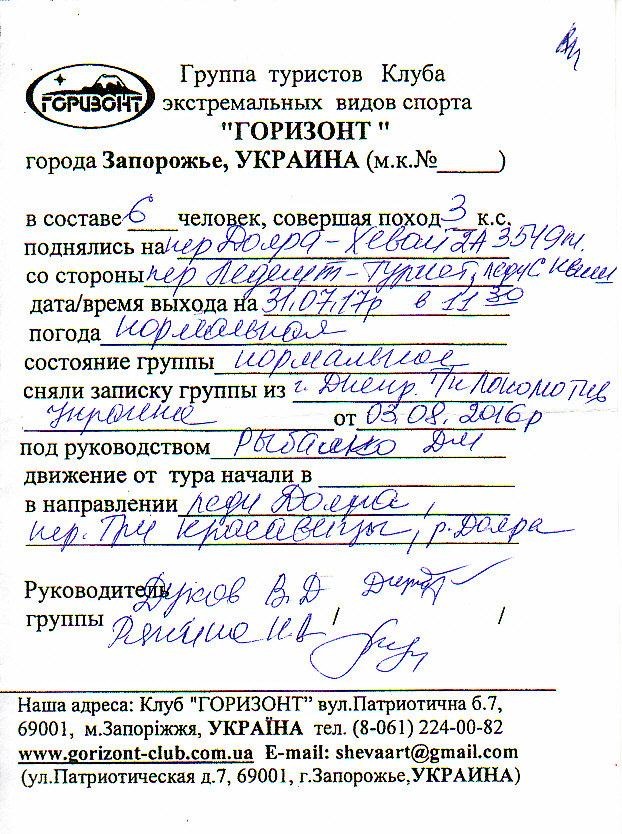 ГОРИЗОНТ
Группа туристов Клуба
экстремальных видов спорта
"ГОРИЗОНТ "
города Запорожье, УКРАИНА (м.к.№_____)
в составе 6 человек, совершая поход 3 к.с.
поднялись на пер Доляра-Хевай 2А 3549м.
со стороны пер
дата/время выхода на 31.07.17р в 11 30
погода нормальная
состояние группы нормальное
сняли записку группы из г. Днепр. Локомотив
Украина от 03.08.2016р
под руководством Рыбалко ДМ
движение от тура начали в
в направлении ледн Доляра,
пер. Три красавицы, р. Доляра
Руководитель Дуков В.Д
группы / /
Наша адреса: Клуб "ГОРИЗОНТ" вул.Патриотична б.7,
69001, м.Запоріжжя, УКРАЇНА тел. (8-061) 224-00-82
www.gorizont-club.com.ua E-mail: shevaart@gmail.com
(ул.Патриотическая д.7, 69001, г.Запорожье,УКРАИНА)